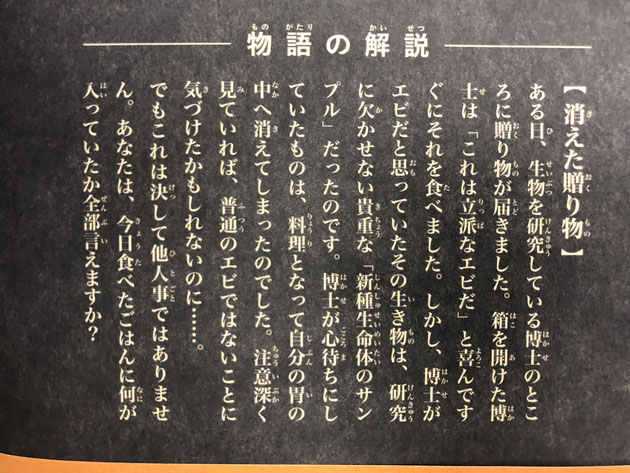 物語の解説
【消えた贈り物】
ある日、生物を研究している博士のとこ
ろに贈り物が届きました。箱を開けた博
士は「これは立派なエビだ」と喜んです
ぐにそれを食べました。しかし、博士が
エビだと思っていたその生き物は、研究
に欠かせない貴重な「新種生命体のサン
プル」だったのです。博士が心待ちにし
ていたものは、料理となって自分の胃の
中へ消えてしまったのでした。注意深く
見ていれば、普通のエビではないことに
気づけたかもしれないのに……。
でもこれは決して他人事ではありませ
ん。あなたは、今日食べたごはんに何が
入っていたか全部言えますか？